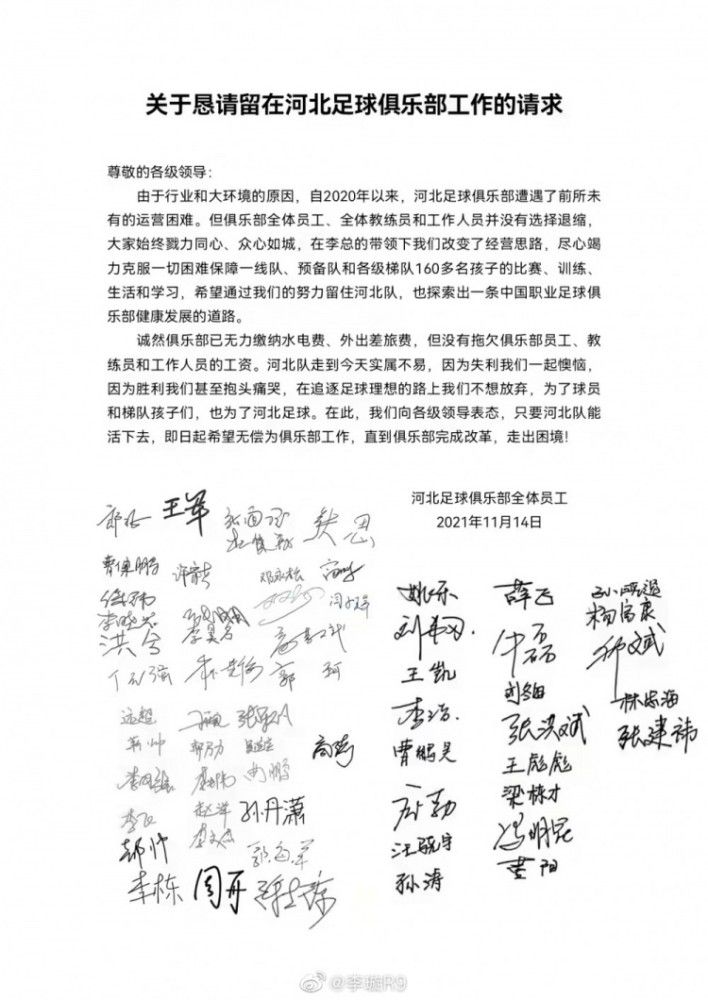 关于恳请留在河北足球俱乐部工作的请求
尊敬的各级领导：
由于行业和大环境的原因，自2020年以来，河北足球俱乐部遭遇了前所未
有的运营困难。但俱乐部全体员工、全体教练员和工作人员并没有选择退缩，
大家始终戮力同心、众心如城，在李总的带领下我们改变了经营思路，尽心竭
力克服一切困难保障一线队、预备队和各级梯队160多名孩子的比赛、训练、
生活和学习，希望通过我们的努力留住河北队，也探索出一条中国职业足球俱
乐部健康发展的道路。
诚然俱乐部已无力缴纳水电费、外出差旅费，但没有拖欠俱乐部员工、教
练员和工作人员的工资。河北队走到今天实属不易，因为失利我们一起懊恼，
因为胜利我们甚至抱头痛哭，在追逐足球理想的路上我们不想放弃，为了球员
和梯队孩子们，也为了河北足球。在此，我们向各级领导表态，只要河北队能
活下去，即日起希望无偿为俱乐部工作，直到俱乐部完成改革，走出困境！
河北足球俱乐部全体员工
2021年11月14日
王军
曹保鹏
邓永松
李晓芯
洪兮
李昊名
郭珂
远超
高莹
赵洋
孙丹潇
郝帅
郭海军
李栋
周开
姚乐
王凯
李浩
曹鹏昊
唐勃
汪晓宇
孙涛
薛飞
牛磊
张洪斌
王彪彪
梁栋才
冯明昆
黄阳
杨富康
仲文斌
林忠海
张建祎
@李璇R9